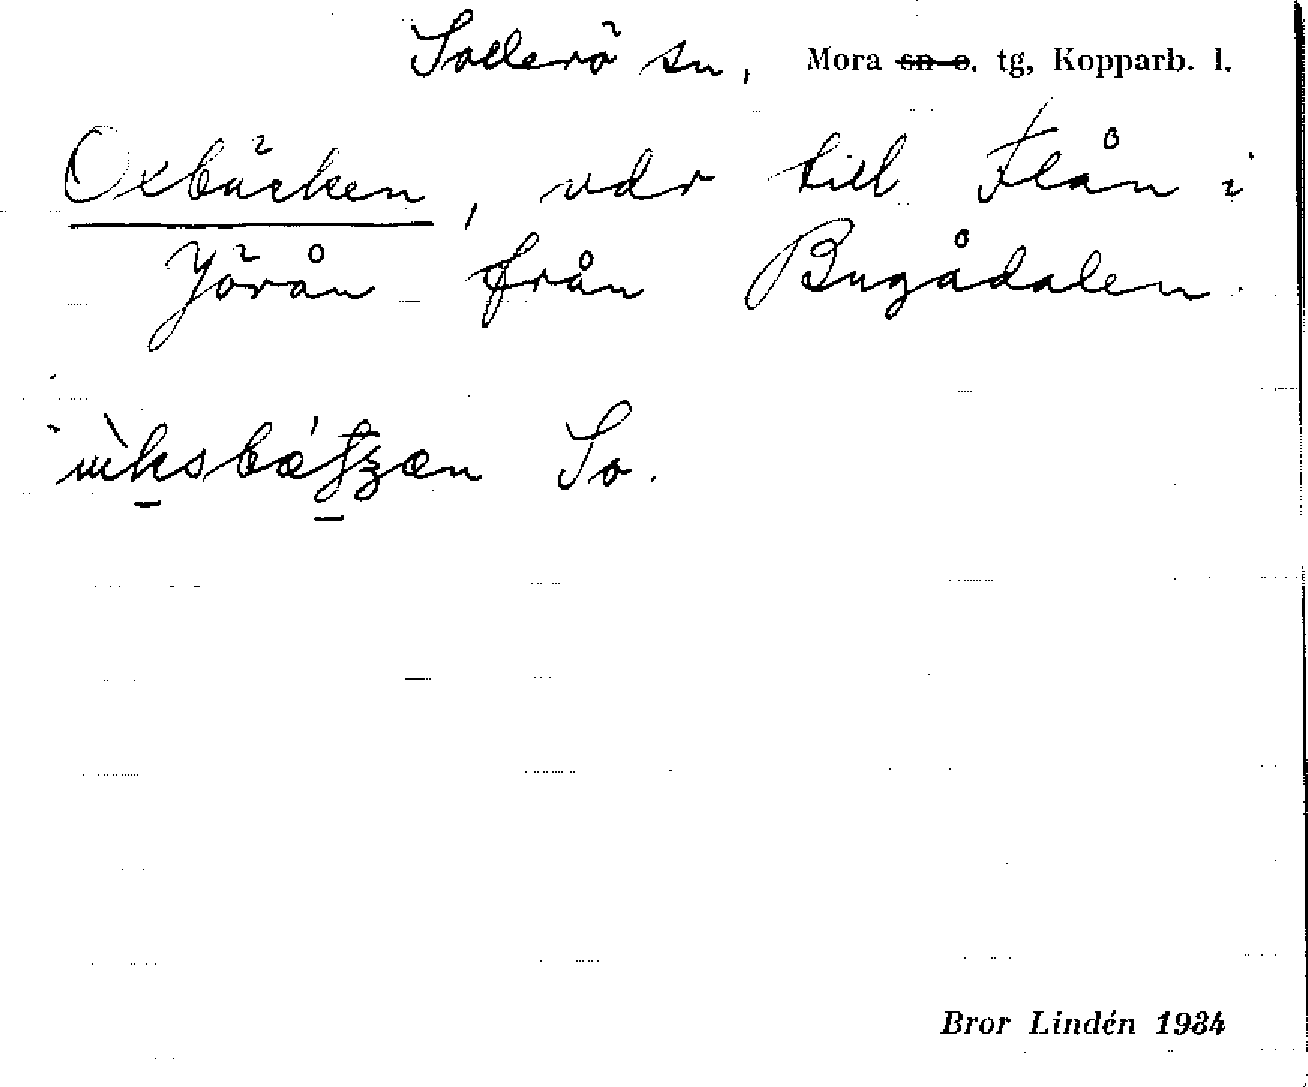 Sollerö sn, Mora sn o. tg, Kopparb. l.
Oxbäcken, vdr till Flån i
Yörån från Bugådalen.
So.
Bror Lindén 1934